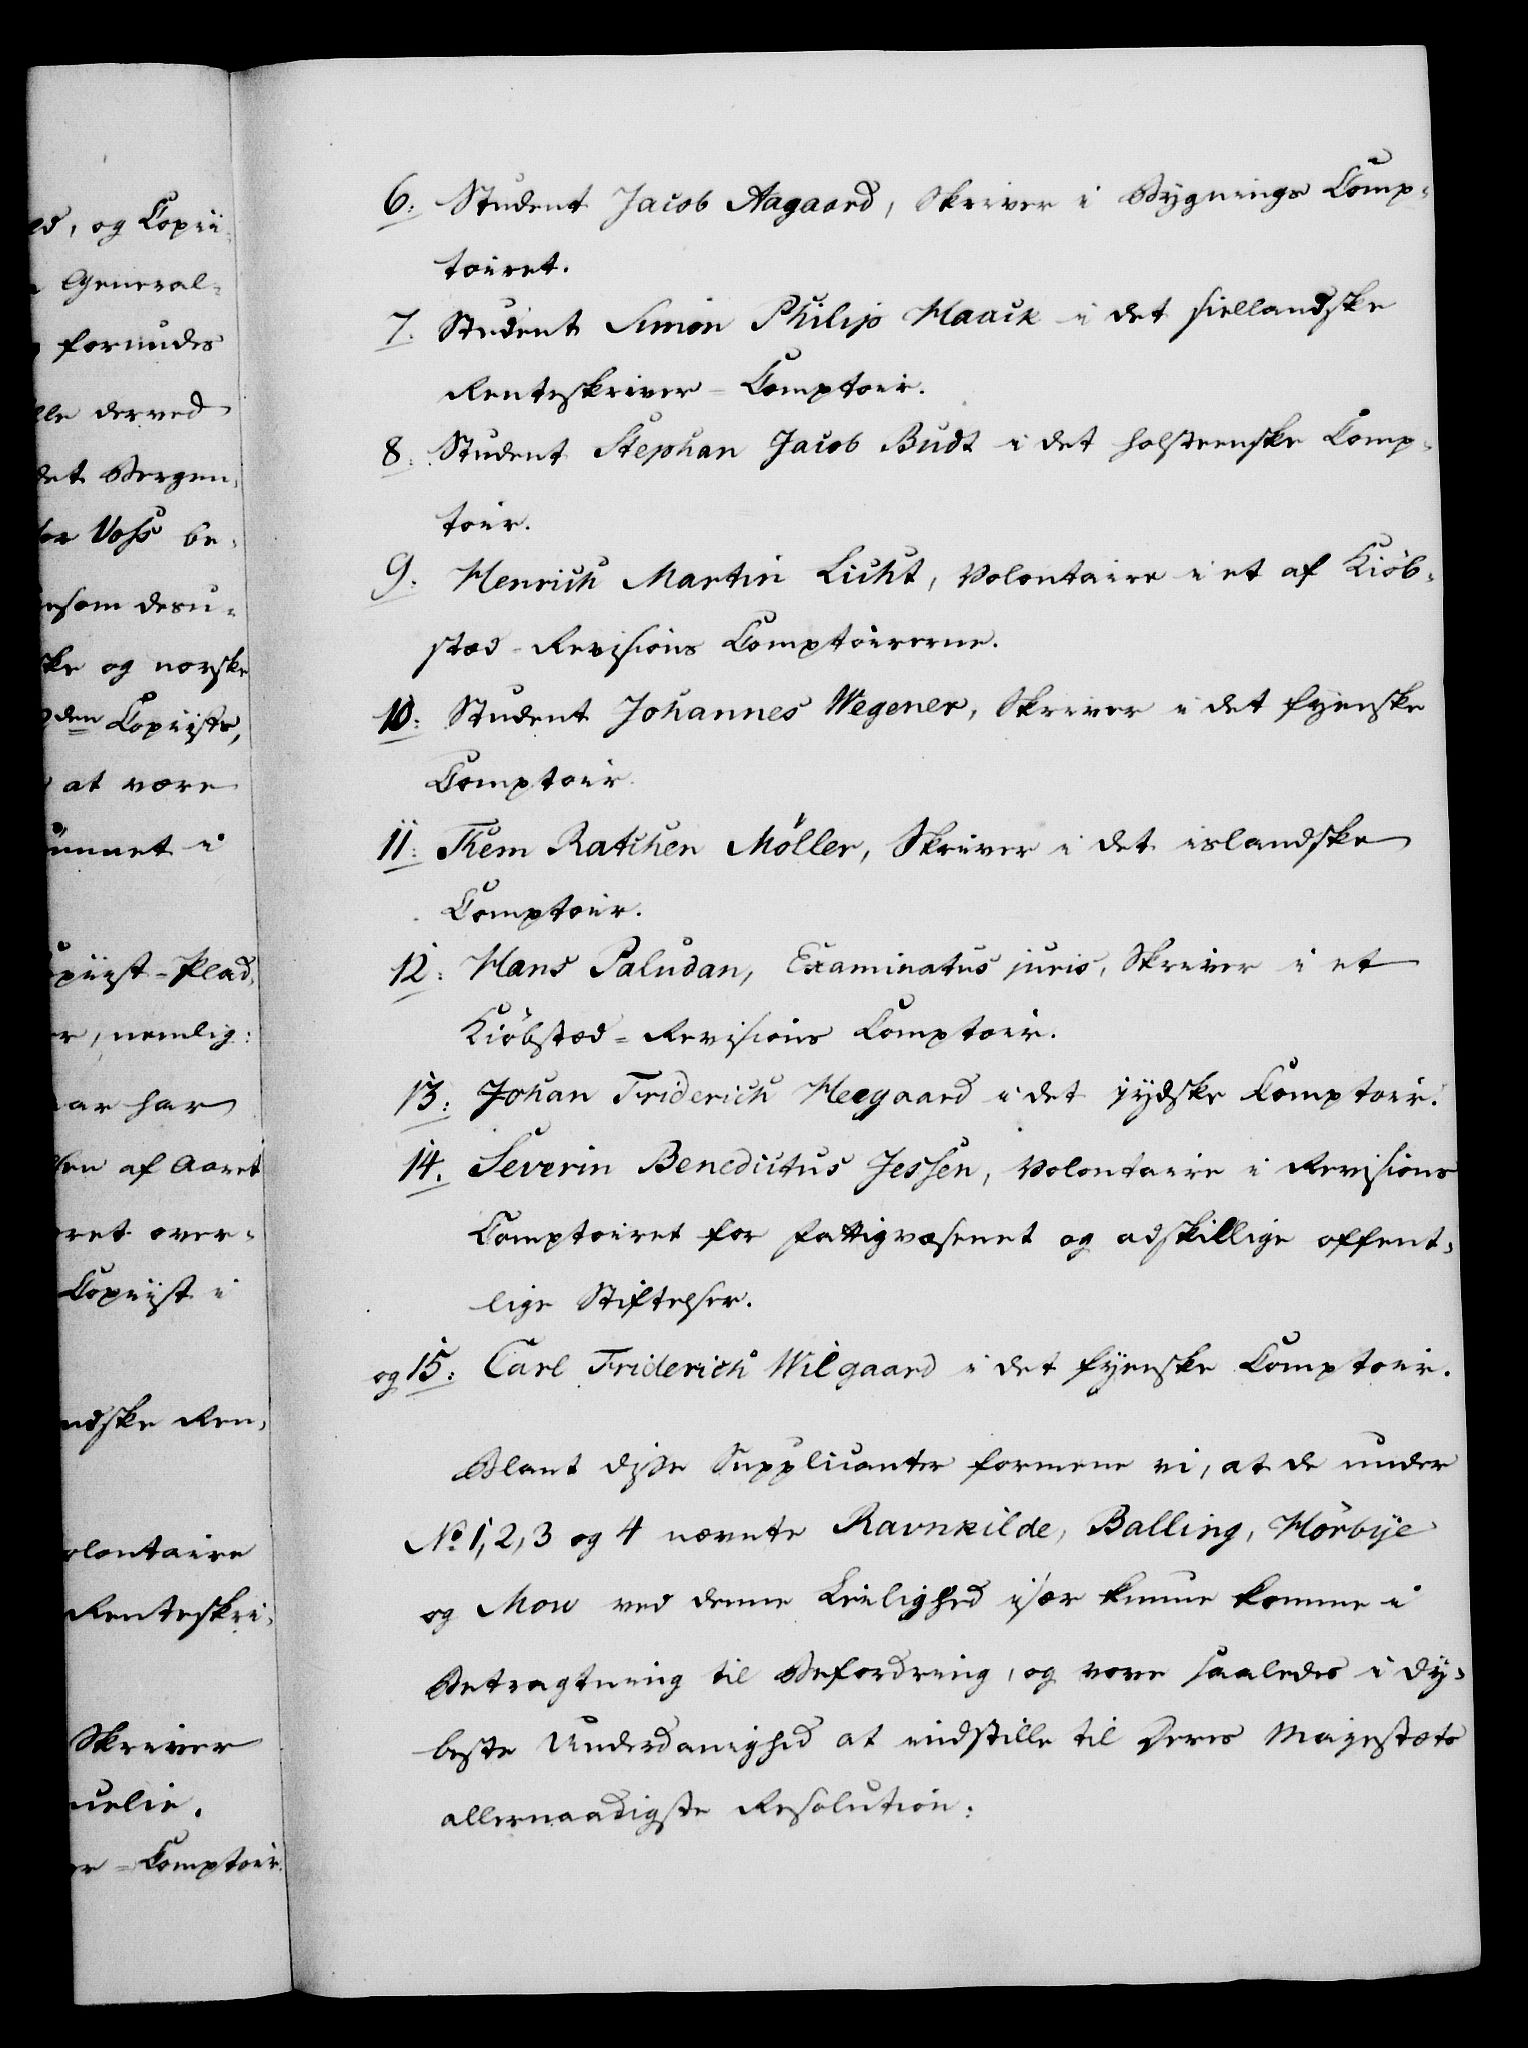 ed, og Copii-
General-
forundes
lle derved
det Bergen-
for Voss be-
esom desu-
ske og norske
den Copiists,
at være
undet i
opiist-Plad-
er, nemlig:
aar har
sen af Aaret
aret over-
Copiist i
ndske Ren-
olontaire
Renteskri-
Skriver
uelie.
er-Comptoir.
6: Student Jacob Aagaard, Skriver i Bygnings Comp-
toiret.
7. Student Simon Philip Haack i det siellandske
Renteskriver-Comptoir.
8. Student Stephan Jacob Budt i det holsteenske Comp-
toir.
9. Henrich Martin Licht, Volontaire i et af Kiöb-
stæd-Revisions Comptoirerne.
10: Student Johannes Wegener, Skriver i det fyenske
Comptoir
11: Them Ratchen Möller, Skriver i det islandske
Comptoir.
12: Hans Paludan, Examinatus juris, Skriver i et
Kiöbstæd-Revisions Comptoir.
13: Johan Friderich Heegaard i det jydske Comptoir.
14. Severin Benedictus Jessen, Volontaire i Revisions
Comptoiret for Fattigvæsenet og adskillige offent-
lige Stiftelser.
og 15: Carl Friderich Wilgaard i det fyenske Comptoir.
Blant disse Supplicanter formene vi, at de under
No 1, 2, 3 og 4 nævnte Ravnkilde, Balling, Hörbye
og Mow ved denne Leilighed især kunne komme i
Betragtning til Befordring, og vove saaledes i dy-
beste Underdanighed at indstille til Deres Majestæts
allernaadigste Resolution: